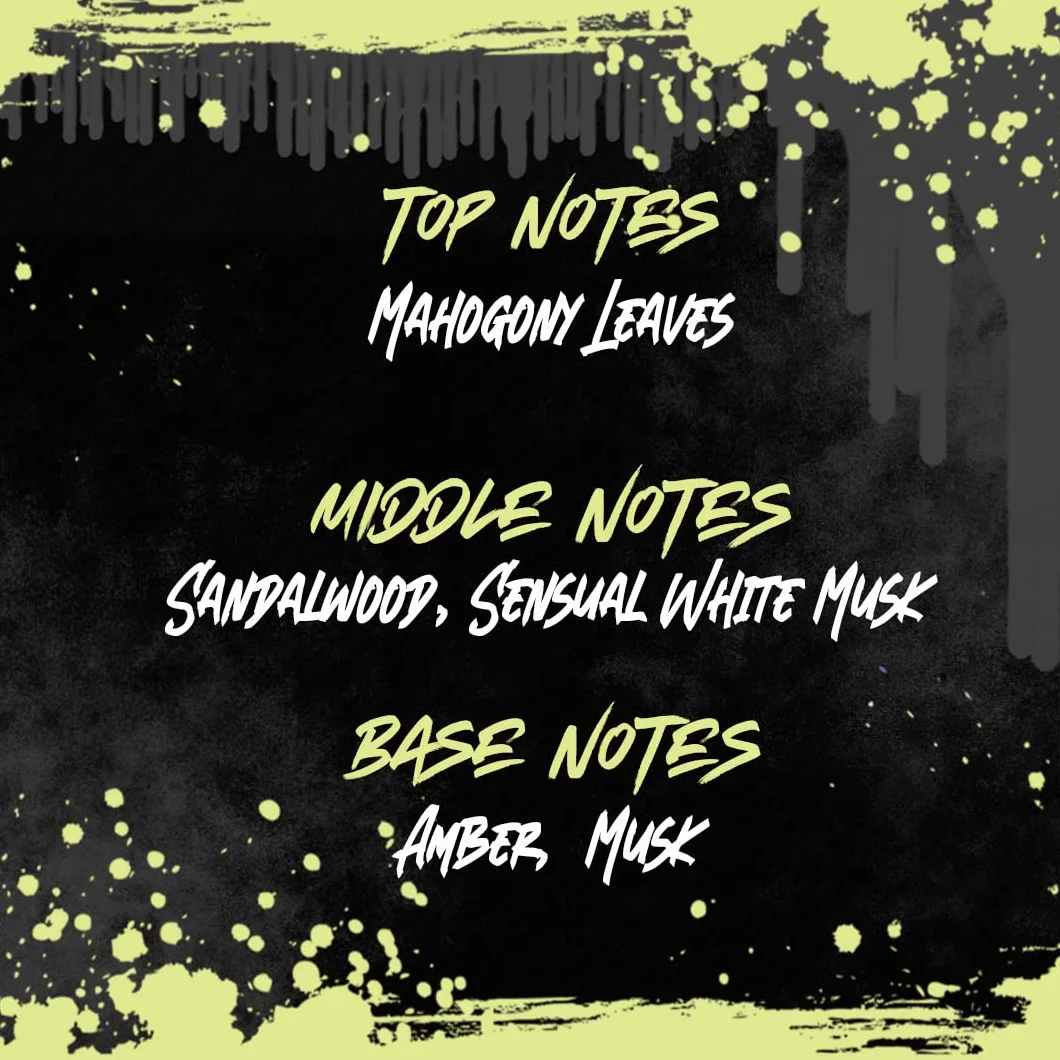 Top Notes
Mahogony Leaves
Middle Notes
Sandalwood, Sensual White Musk
Base Notes
Amber, Musk